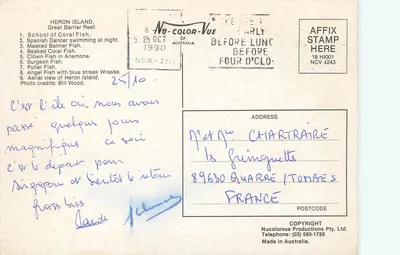 HERON ISLAND,
Great Barrier Reef.
1. School of Coral Fish.
2. Spanish Dancer swimming at night.
3. Masked Banner Fish.
4. Beaked Coral Fish.
5. Clown Fish in Anemone.
6. Surgeon Fish.
7. Puller Fish.
8. Angel Fish with blue streak Wrasse.
9. Aerial view of Heron Island.
Photo by: Bill Wood.
NU-COLOR-VUE
OF
AUSTRALIA
25 OCT
1990
N.S.W.
BEFORE LUNC
BEFORE
FOUR O'CLO
AFFIX
STAMP
HERE
18 HI001
NCV 4243
25/10.
C'est l'île où nous avons
passé quelques jours
magnifiques. ce soir
c'est le départ pour
Singapour et bientôt le retour
Gros bises
ADDRESS
Mr et Mme CHARTRAIRE
89630 QUARRE/TOMBES
FRANCE
POSTCODE
COPYRIGHT
Nucolorvue Productions Pty. Ltd.
Telephone: (03) 560-1788
Made in Australia.